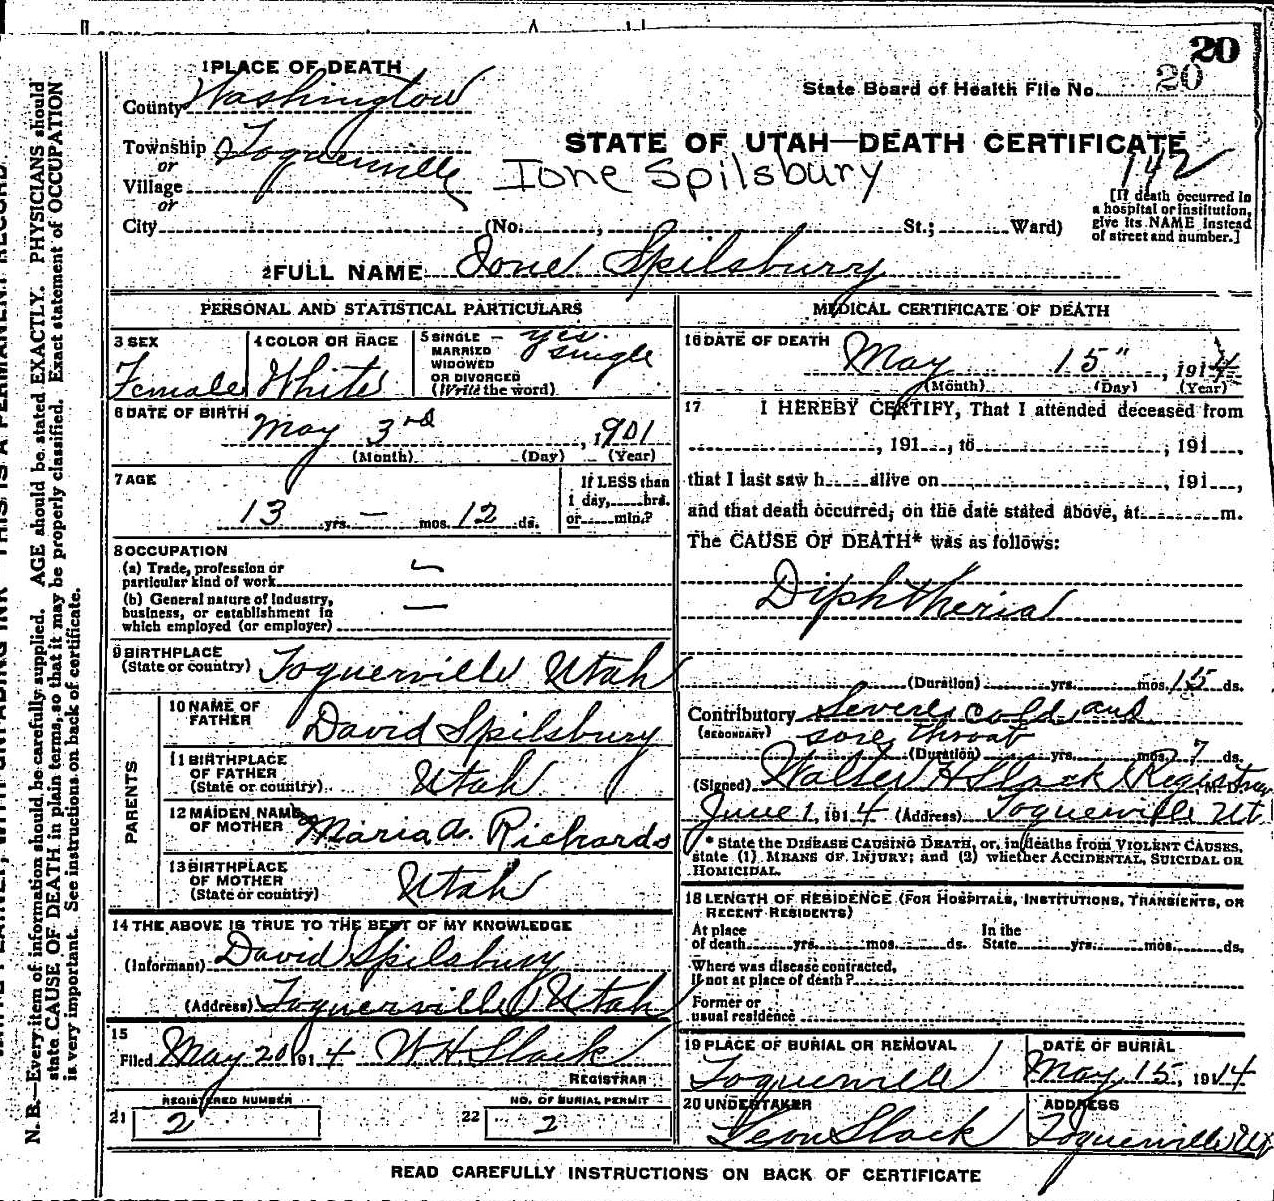 20
State Board of Health File No. 20
1 PLACE OF DEATH
County Washington
Township Toquerville
or
Village
or
City (No. , St.; Ward)
STATE OF UTAH—DEATH CERTIFICATE
142
Ione Spilsbury
[If death occurred in
a hospital or institution,
give its NAME instead
of street and number.]
2 FULL NAME Ione Spilsbury
PERSONAL AND STATISTICAL PARTICULARS
3 SEX
Female
4 COLOR OR RACE
White
5 SINGLE – yes.
MARRIED single
WIDOWED
OR DIVORCED
(Write the word)
6 DATE OF BIRTH
May 3rd , 1901
(Month) (Day) (Year)
7 AGE
13 yrs. — mos. 12 ds.
If LESS than
1 day, hrs.
or min.?
8 OCCUPATION
(a) Trade, profession or
particular kind of work
(b) General nature of industry,
business, or establishment in
which employed (or employer)
9 BIRTHPLACE
(State or country) Toquerville Utah
PARENTS
10 NAME OF
FATHER David Spilsbury
11 BIRTHPLACE
OF FATHER
(State or country) Utah
12 MAIDEN NAME
OF MOTHER Maria A. Richards
13 BIRTHPLACE
OF MOTHER
(State or country) Utah
14 THE ABOVE IS TRUE TO THE BEST OF MY KNOWLEDGE
(Informant) David Spilsbury
(Address) Toquerville Utah
15
Filed May 20 1914 W H Slack
REGISTRAR
21 REGISTERED NUMBER
2
22 NO. OF BURIAL PERMIT
2
MEDICAL CERTIFICATE OF DEATH
16 DATE OF DEATH
May 15" , 1914
(Month) (Day) (Year)
17 I HEREBY CERTIFY, That I attended deceased from
, 191 , to , 191 ,
that I last saw h alive on , 191 ,
and that death occurred, on the date stated above, at m.
The CAUSE OF DEATH* was as follows:
Diphtheria
(Duration) yrs. mos. 15 ds.
Contributory Severe cold and
(SECONDARY) sore throat
(Duration) yrs. mos. 7 ds.
(Signed) Walter H Slack Registrar M. D.
June 1, 1914 (Address) Toquerville Ut.
* State the DISEASE CAUSING DEATH, or, in deaths from VIOLENT CAUSES,
state (1) MEANS OF INJURY; and (2) whether ACCIDENTAL, SUICIDAL OR
HOMICIDAL.
18 LENGTH OF RESIDENCE (FOR HOSPITALS, INSTITUTIONS, TRANSIENTS, OR
RECENT RESIDENTS)
At place In the
of death yrs. mos. ds. State yrs. mos. ds.
Where was disease contracted,
If not at place of death?
Former or
usual residence
19 PLACE OF BURIAL OR REMOVAL
Toquerville
DATE OF BURIAL
May 15, 1914
20 UNDERTAKER
Leon Slack
ADDRESS
Toquerville Ut
READ CAREFULLY INSTRUCTIONS ON BACK OF CERTIFICATE
N. B.—Every item of information should be carefully supplied. AGE should be stated EXACTLY. PHYSICIANS should
state CAUSE OF DEATH in plain terms, so that it may be properly classified. Exact statement of OCCUPATION
is very important. See instructions on back of certificate.